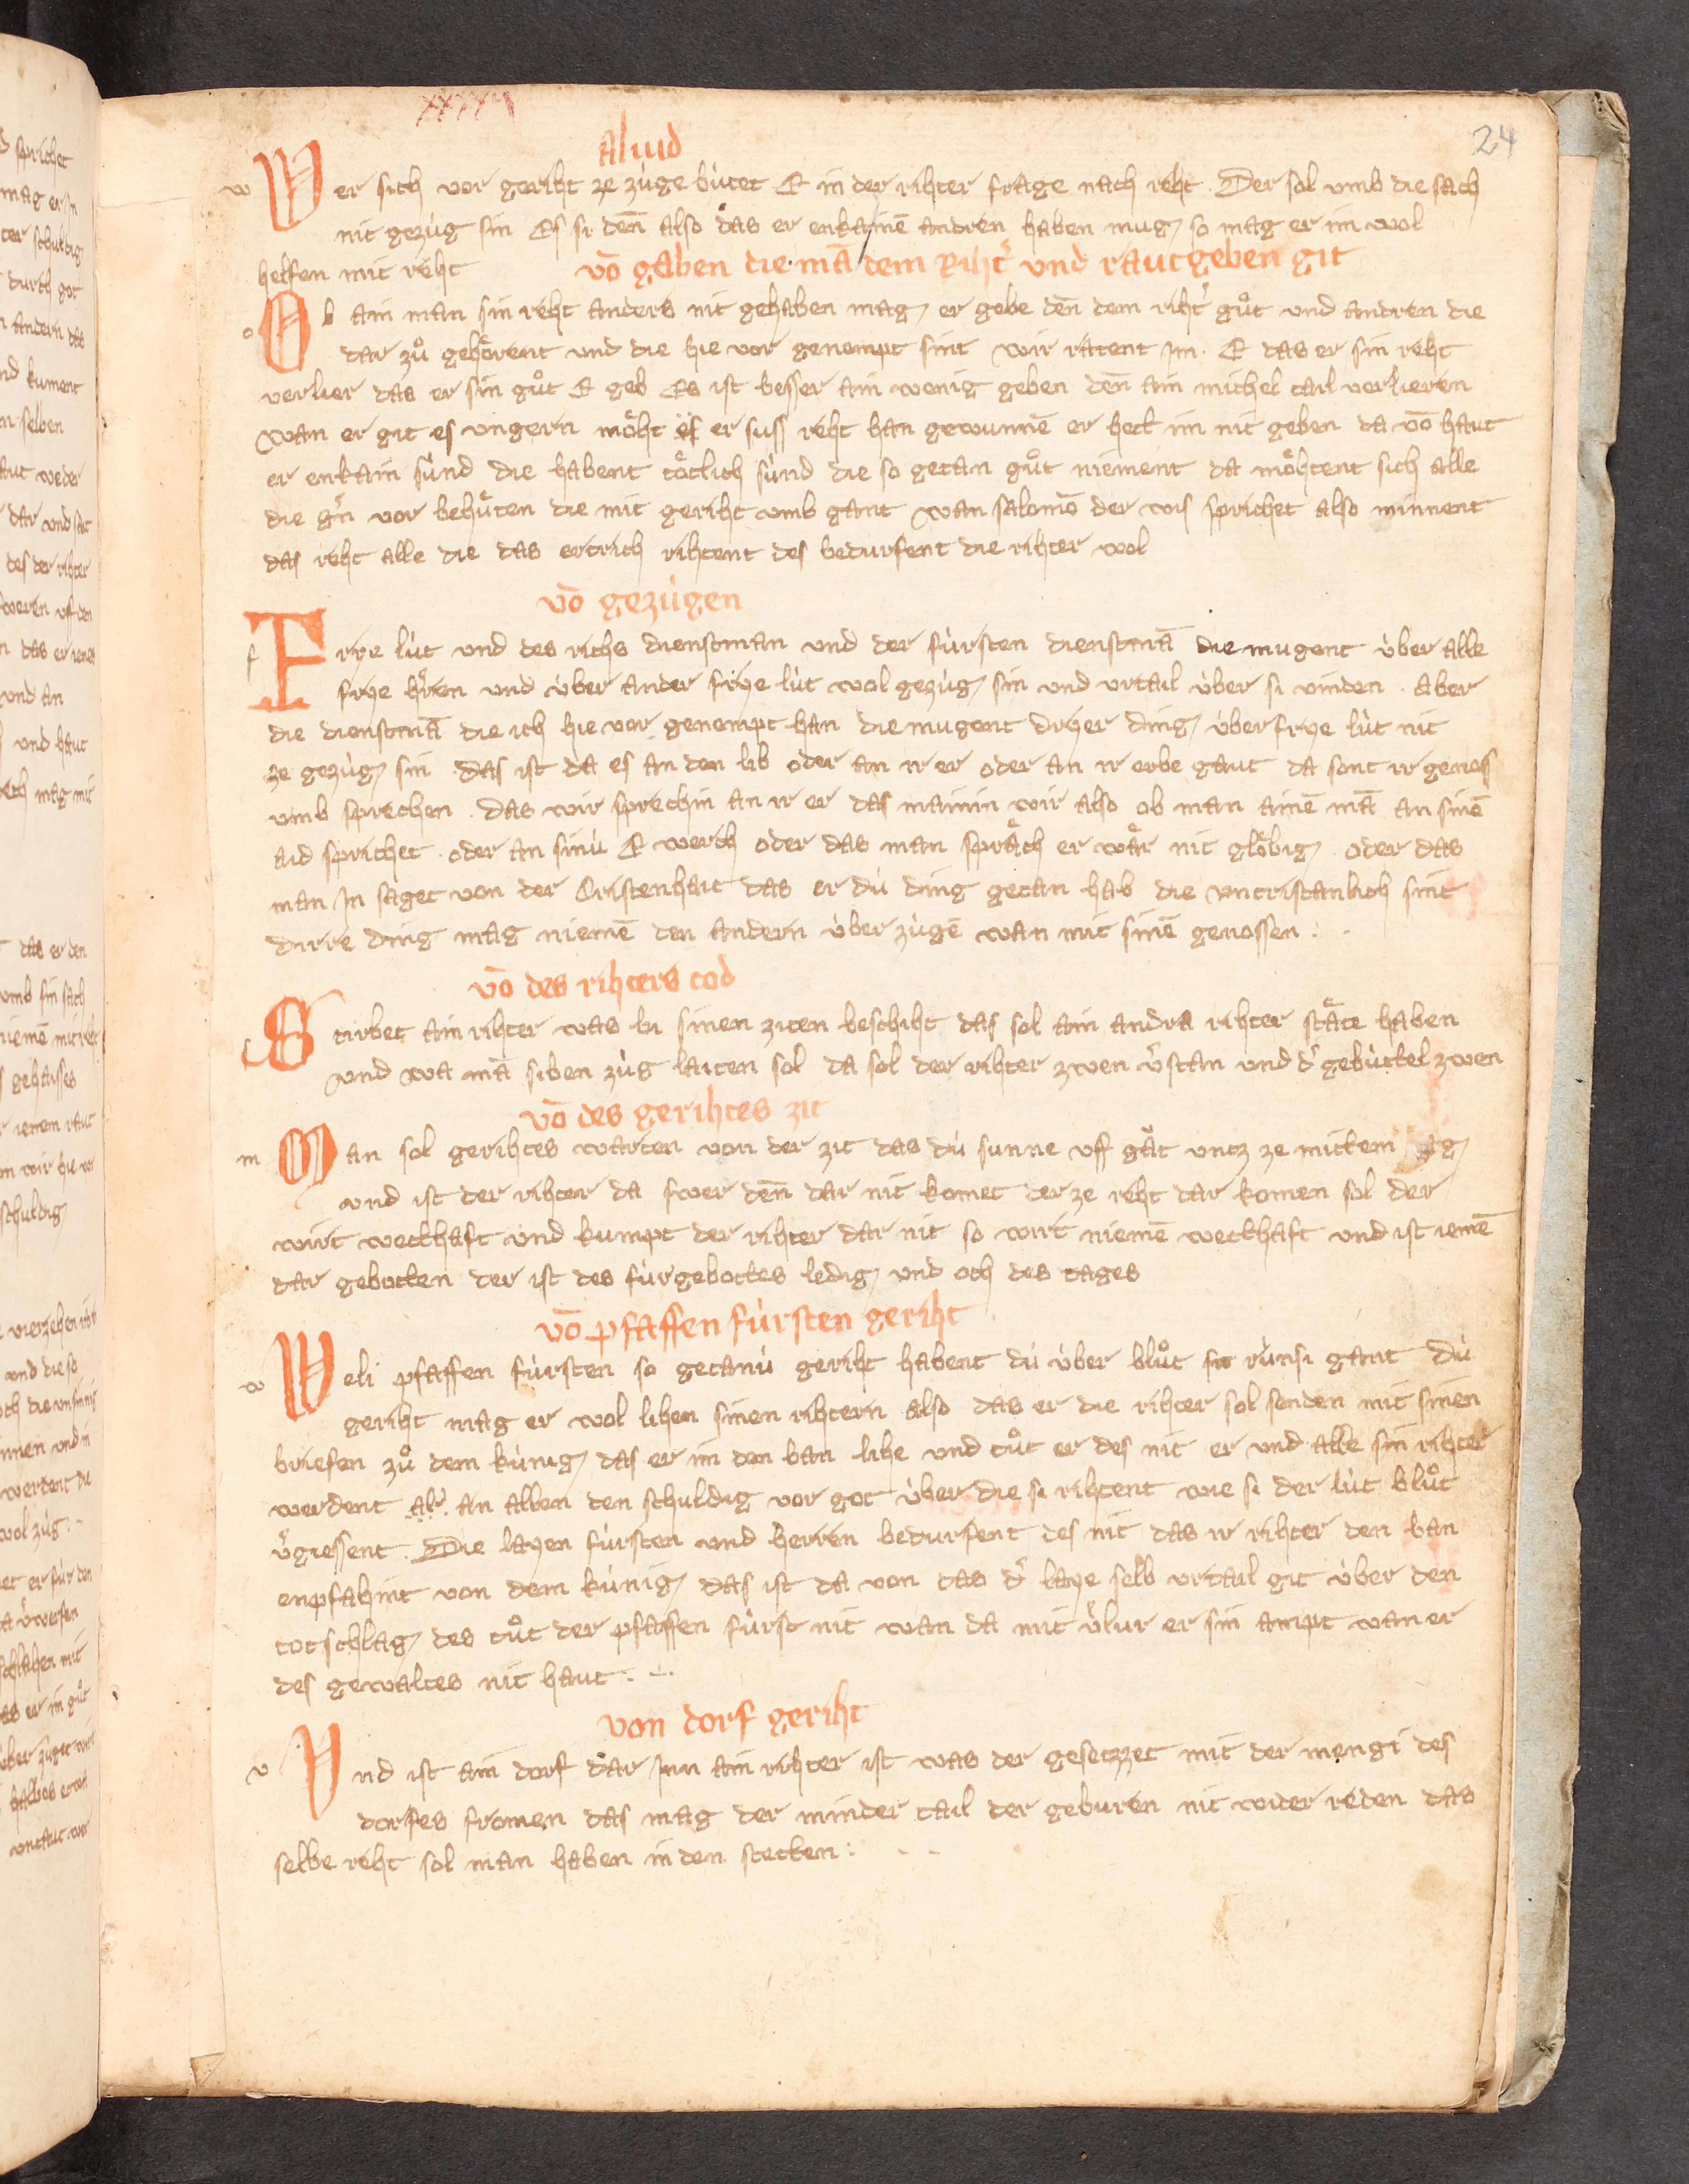 24
aliud
Wer sich vor geriht ze zúge bútet E in der rihter frage nach reht . Der sol vmb die sach
nit gezúg sin Es si den̄ also das er enkainē andren haben mug so mag er im wol
helfen mit reht
vō gaben die mā dem Riht͛ vnd rautgeben git
Ob ain man sin reht anders nit gehaben mag er gebe den̄ dem riht͛ gůt vnd andren die
dar zů gehoͤrent vnd die hie vor genempt sint wir ratent Im . E das er sin reht
verlier das er sin gůt E geb Es ist besser ain wenig geben den̄ ain michel tail verlieren
wan er git es vngern moͤht er suss reht han gewunnē er hett im nit geben da vō haut
er enkain súnd die habent toͤtlich súnd die so getan gůt niement da moͤhtent sich alle
die g͛n vor behuͤten die mit geriht vmb gant wan salomō der wis sprichet also minnent
das reht alle die das ertrich rihtent des bedurfent die rihter wol
vō gezúgen
Frye lút vnd des richs dienstman vnd der fúrsten dienstmā die mugent úber alle
frye h͛ren vnd úber ander frye lút wol gezúg sin vnd vrtail úber si vinden . Aber
die dienstmā die ich hie vor genempt han die mugent dryer ding úber frye lút nit
ze gezúg sin . Das ist da es an den lib oder an ir er oder an ir erbe gaut da sont ir genoss
vmb sprechen . Das wir sprechin an ir er das mainin wir also ob man ainē mā an sinē
aid sprichet . oder an sinú E werch oder das man spraͤch er waͤr nit gloͤbig . oder das
man In saget von der Cristenhait das er dú ding getan hab die vncristanlich sint
dirre ding mag niemē den andern úber zúgē wan mit sinē genossen :
vō des rihters tod
Stirbet ain rihter was bi sinen ziten beschiht das sol ain andra rihter staͤte haben
vnd wa mā siben zúg laiten sol da sol der rihter zwen v͛stan vnd d͛ gebúttel zwen
vō des gerihtes zit
Man sol gerihtes warten von der zit das dú sunne vff gaͤt vntz ze mittem
vnd ist der rihter da swer den̄ dar nit komet der ze reht dar komen sol der
wirt wetthaft vnd kumpt der rihter dar nit so wirt niemē wetthaft vnd ist iemē
dar gebotten der ist des fúrgebottes ledig vnd och des tages
vō pfaffen fúrsten geriht
Weli pfaffen fúrsten so getanú geriht habent dú úber blůt runsi gant dú
geriht mag er wol lihen sinen rihtern also das er die rihter sol senden mit sinen
briefen zů dem kúnig das er im den ban lihe vnd tůt er des nit er vnd alle sin rihter
werdent an allen den schuldig vor got úber die si rihtent wie si der lút blůt
v͛giessent . Die layen fúrsten vnd herren bedurfent des nit das ir rihter den ban
enpfahint von dem kúnig das ist da von das d͛ laye selb vrtail git úber den
totschlag des tůt der pfaffen fúrst nit wan da mit v͛lur er sin ampt wan er
des gewaltes nit haut :
von dorf geriht
Vnd ist ain dorf dar Inn ain rihter ist was der gesetzzet mit der mengi des
dorfes fromen das mag der minder tail der geburen nit wider reden das
selbe reht sol man haben in den stetten :